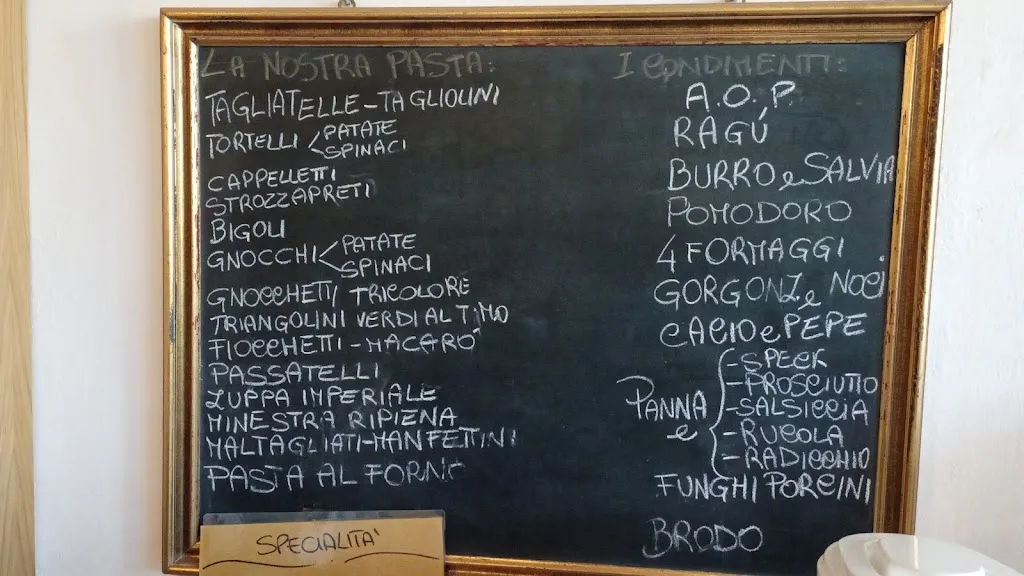 LA NOSTRA PASTA:
TAGLIATELLE-TAGLIOLINI
TORTELLI < PATATE
SPINACI
CAPPELLETTI
STROZZAPRETI
BIGOLI
GNOCCHI < PATATE
SPINACI
GNOCCHETTI TRICOLORE
TRIANGOLINI VERDI AL TIMO
FIOCCHETTI - MACARÓ
PASSATELLI
ZUPPA IMPERIALE
MINESTRA RIPIENA
MALTAGLIATI-MANFETTINI
PASTA AL FORNO
SPECIALITA'
I CONDIMENTI:
A.O.P.
RAGÚ
BURRO e SALVIA
POMODORO
4 FORMAGGI
GORGONZ. e NOCI
CACIO e PEPE
PANNA e { -SPECK
-PROSCIUTTO
-SALSICCIA
-RUCOLA
-RADICCHIO
FUNGHI PORCINI
BRODO